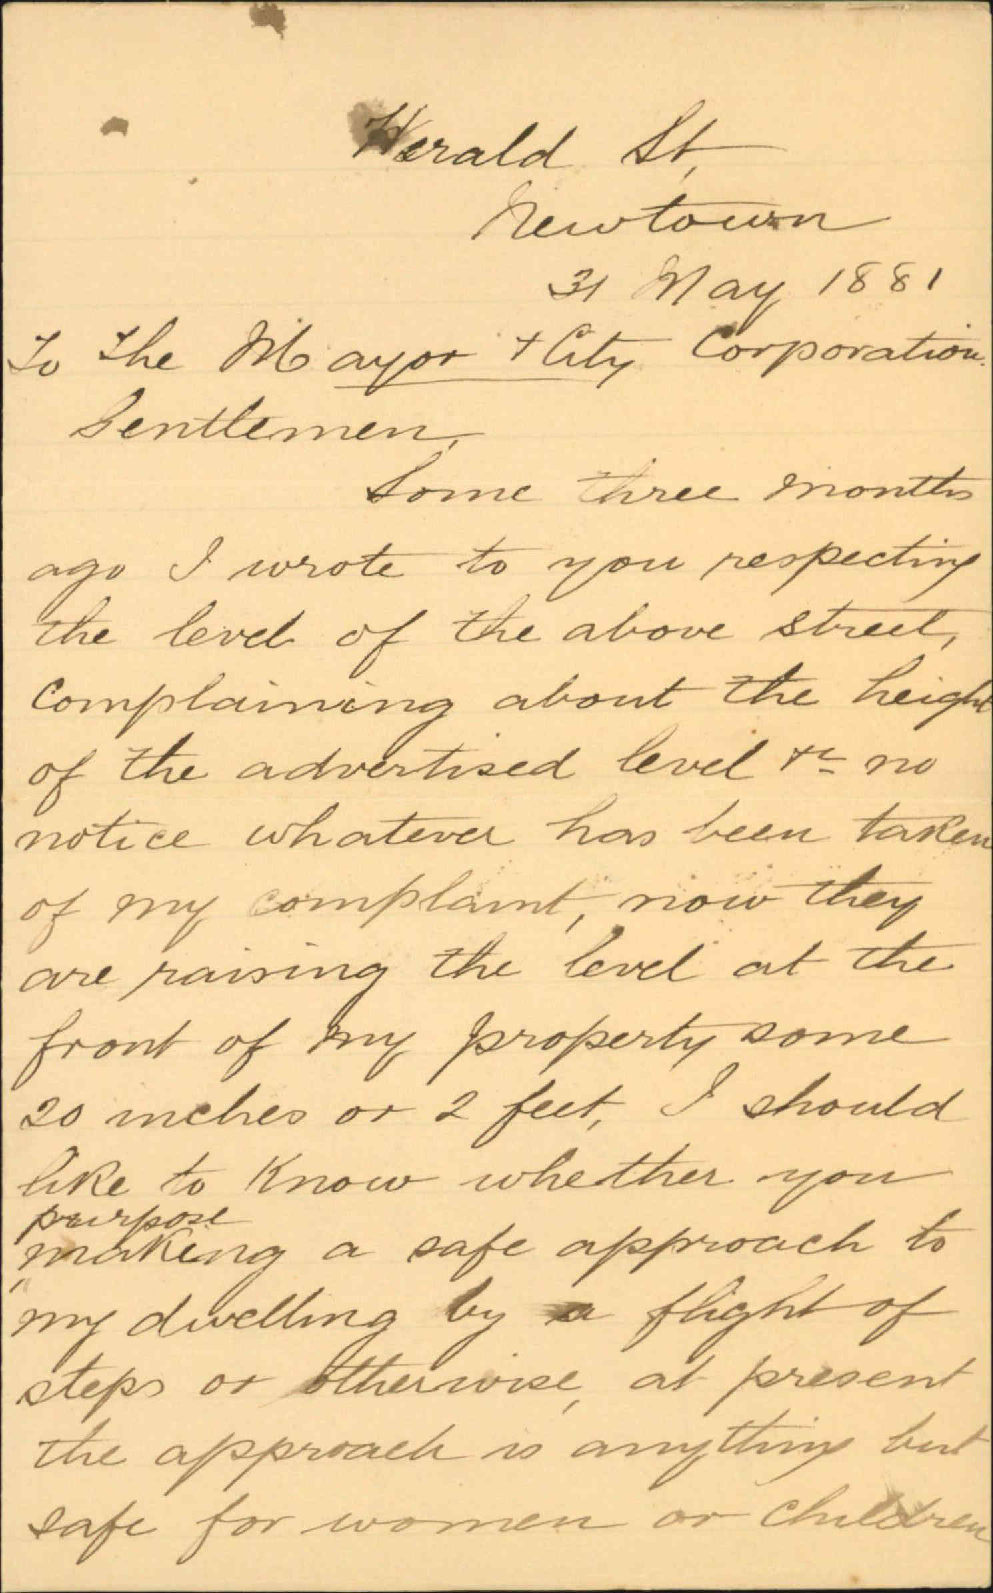 Herald St,
Newtown
31 May 1881
To The Mayor & City Corporation.
Gentlemen,
Some three months
ago I wrote to you respecting
the level of the above street,
complaining about the height
of the advertised level &c no
notice whatever has been taken
of my complaint, now they
are raising the level at the
front of my property some
20 inches or 2 feet, I should
like to know whether you
purpose
making a safe approach to
my dwelling by a flight of
steps or otherwise, at present
the approach is anything but
safe for women or children